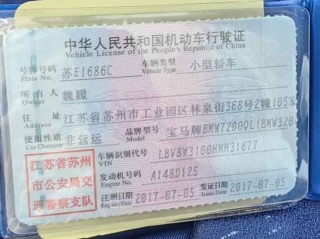 中华人民共和国机动车行驶证
Vehicle License of the People's Republic of China
号牌号码 苏E1686C 车辆类型 小型轿车
Plate No. Vehicle Type
所有人 魏
Owner
住址 江苏省苏州市工业园区林泉街368号2幢105室
Address
使用性质 非营运 品牌型号 宝马牌BMW7200QL(BMW320
Use Character Model
江苏省苏州
市公安局交
通警察支队
车辆识别代号 LBV8W3100HMR31677
VIN
发动机号码 A1480125
Engine No.
注册日期 2017-07-05 发证日期 2017-07-05
Register Date Issue Date